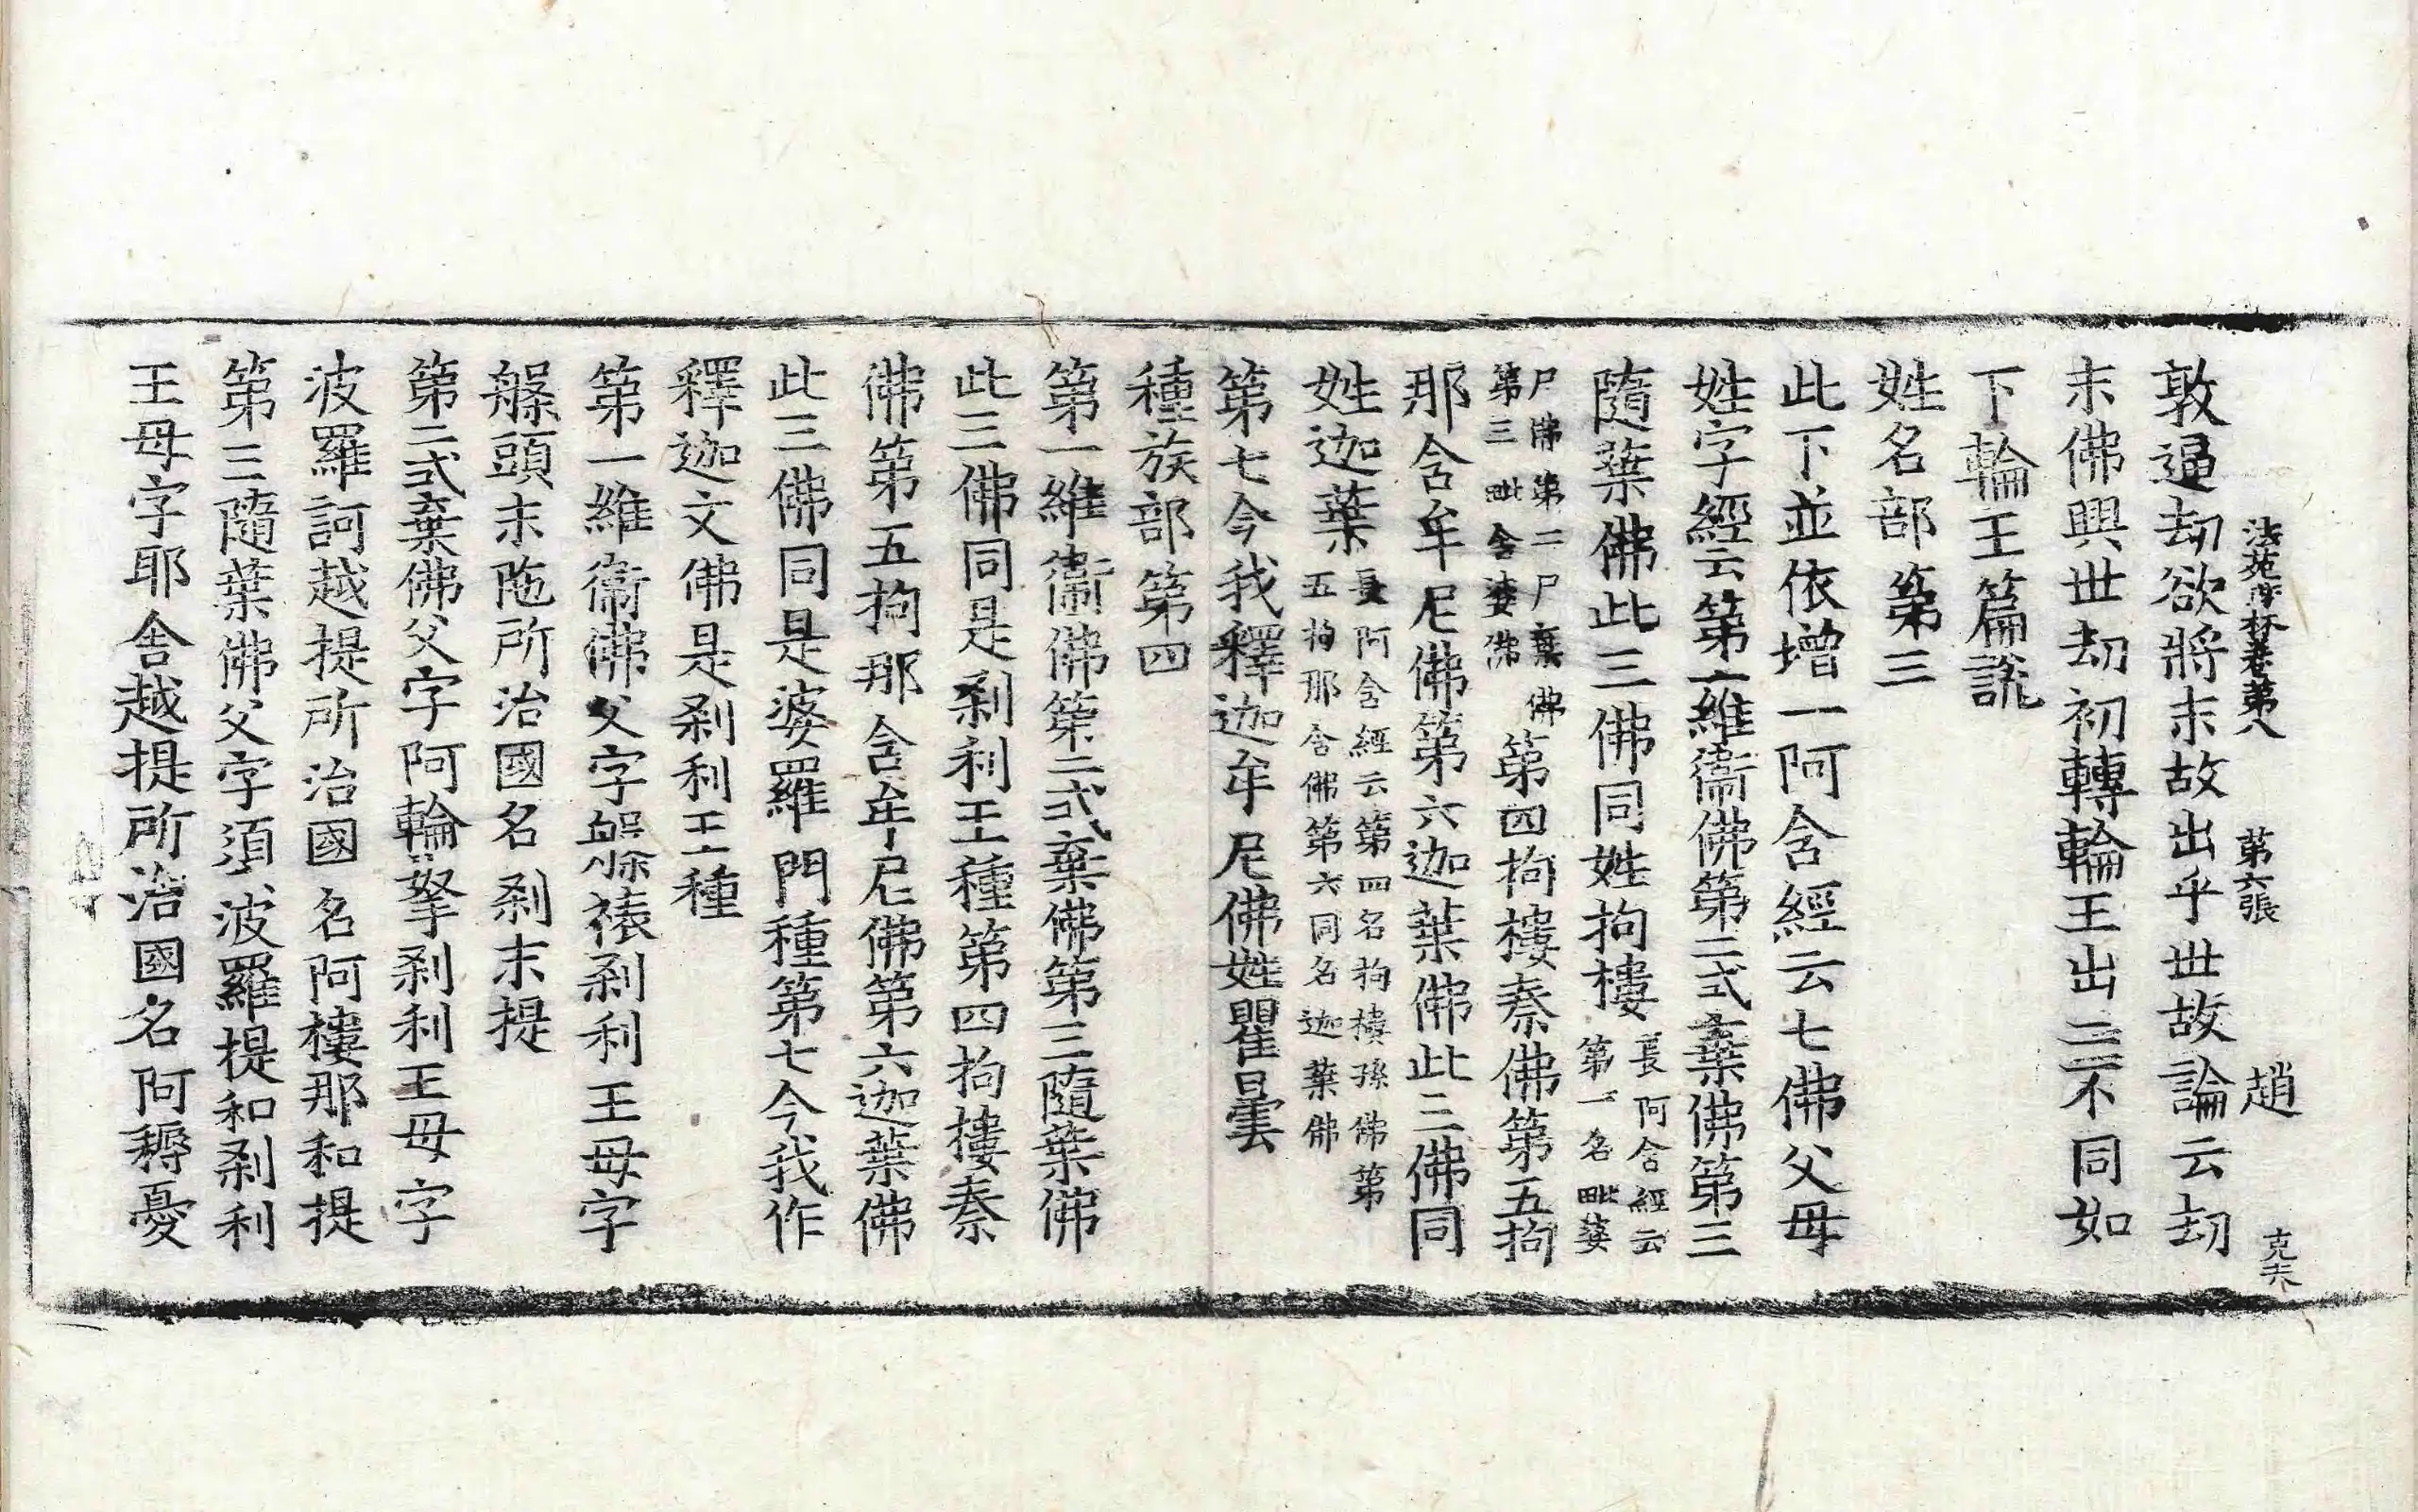 法苑珠林卷第八 第六張 趙 克夫
敦逼劫欲將末故出乎世故論云劫
末佛興世劫初轉輪王出三不同如
下輪王篇說
姓名部第三
此下並依增一阿含經云七佛父母
姓字經云第一維衞佛第二式棄佛第三
隨葉佛此三佛同姓拘樓長阿含經云第一名毗婆
尸佛第二尸棄佛第三毗舍婆佛第四拘樓秦佛第五拘
那含牟尼佛第六迦葉佛此三佛同
姓迦葉長阿含經云第四名拘樓孫佛第五拘那含佛第六同名迦葉佛
第七今我釋迦牟尼佛姓瞿曇
種族部第四
第一維衞佛第二式棄佛第三隨葉佛
此三佛同是剎利王種第四拘樓秦
佛第五拘那含牟尼佛第六迦葉佛
此三佛同是婆羅門種第七今我作
釋迦文佛是剎利王種
第一維衞佛父字槃裱剎利王母字
槃頭末陁所治國名剎末提
第二式棄佛父字阿輪拏剎利王母字
波羅訶越提所治國名阿樓那和提
第三隨葉佛父字須波羅提和剎利
王母字耶舍越提所治國名阿耨憂